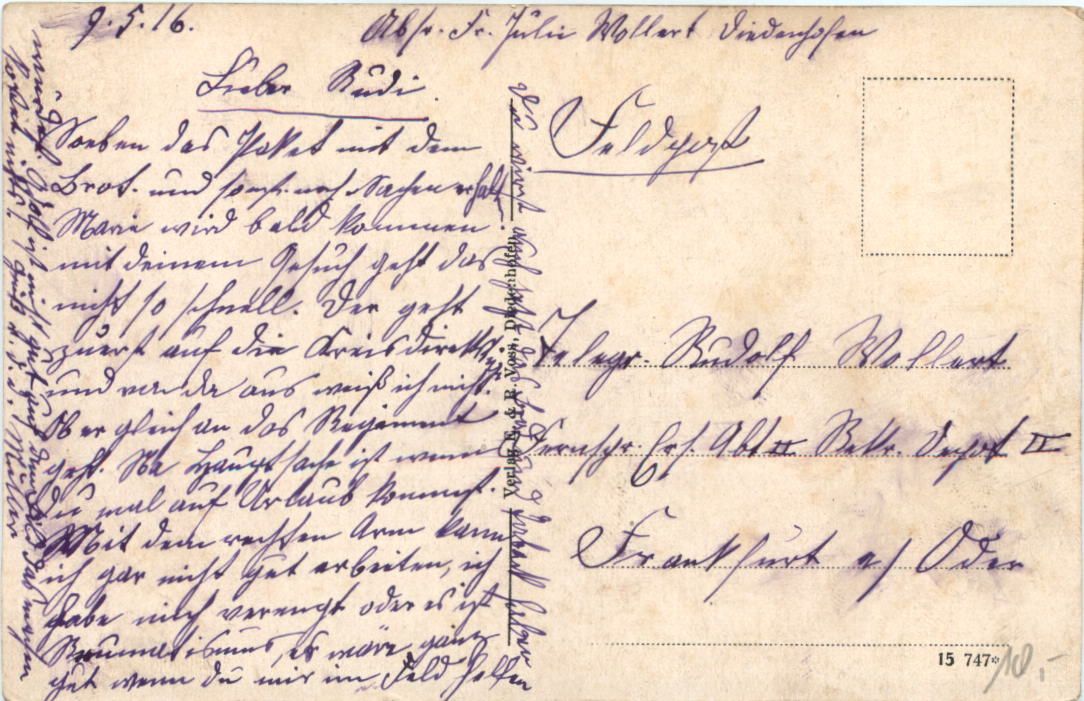 9.5.16.
Abs. Fr. Julie Wollert Diedenhofen
Lieber Rudi.
Soeben das Paket mit dem
Brot. und sonst. noch Sachen erhalt.
Marie wird bald kommen.
mit deinem Gesuch geht das
nicht so schnell. Der geht
zuerst auf die Kreisdirektion
und von da aus weiß ich nicht.
Ob er gleich an das Regiment
geht. Na Hauptsache ist wenn
Du mal auf Urlaub kommst.
Mit dem rechten Arm kann
ich gar nicht gut arbeiten, ich
habe mich verrengt oder es ist
Reumatismus, es wäre ganz
gut wenn du mir im Feld helfen
Feldpost
Telegr. Rudolf Wollert
Fernspr. Ers. Abt II Rekr. Depot II
Frankfurt a/ Oder
Verlag E. & R. Voss, Diedenhofen
15 747*
10.-